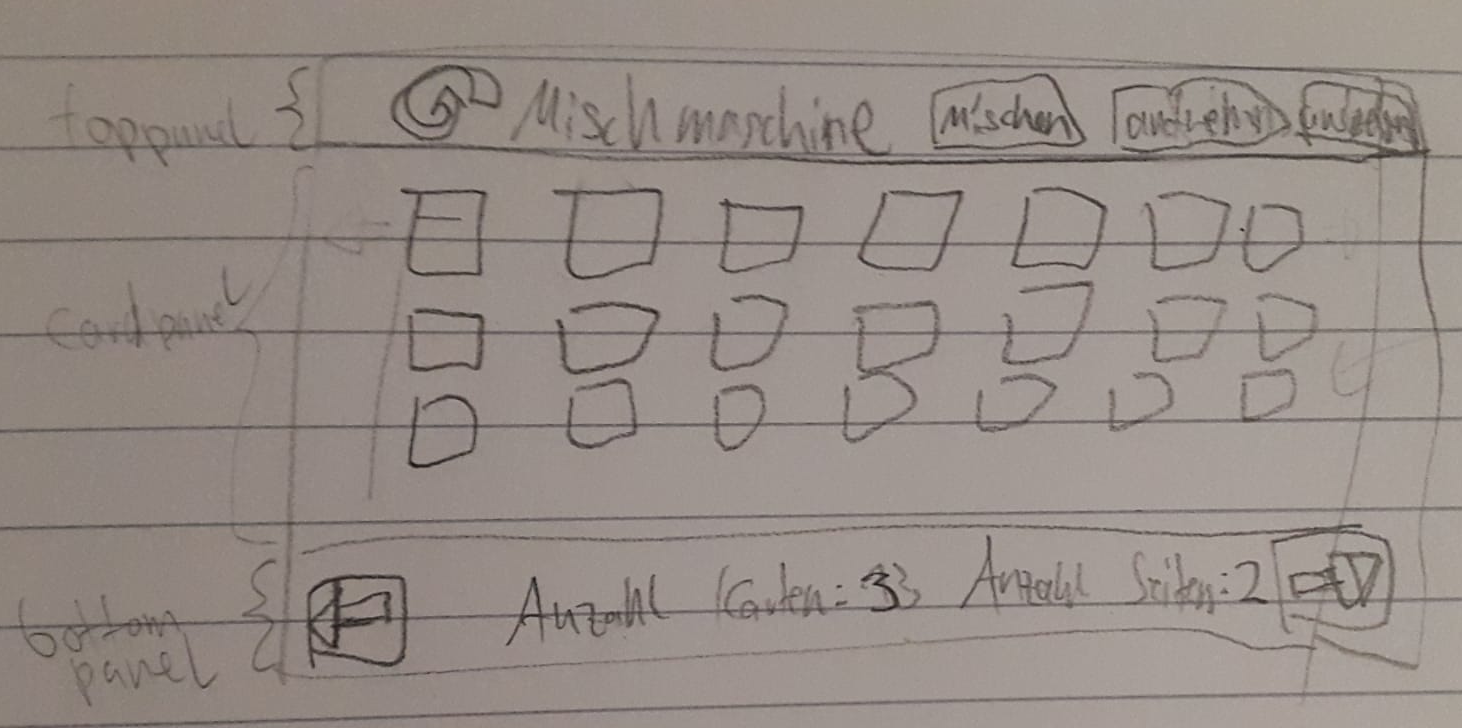 toppanel Mischmaschine Mischen
Cardpanel
Anzahl Karten: 33 Anzahl Seiten: 2
bottom
panel